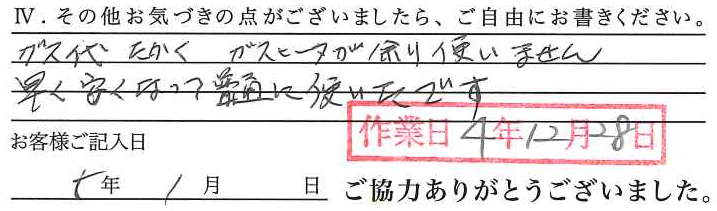 Ⅳ．その他お気づきの点がございましたら、ご自由にお書きください。
ガス代 たかく ガスヒータが余り使いません
早く安くなって普通に使いたです
お客様ご記入日
作業日 4年12月28日
5年 1月 日 ご協力ありがとうございました。